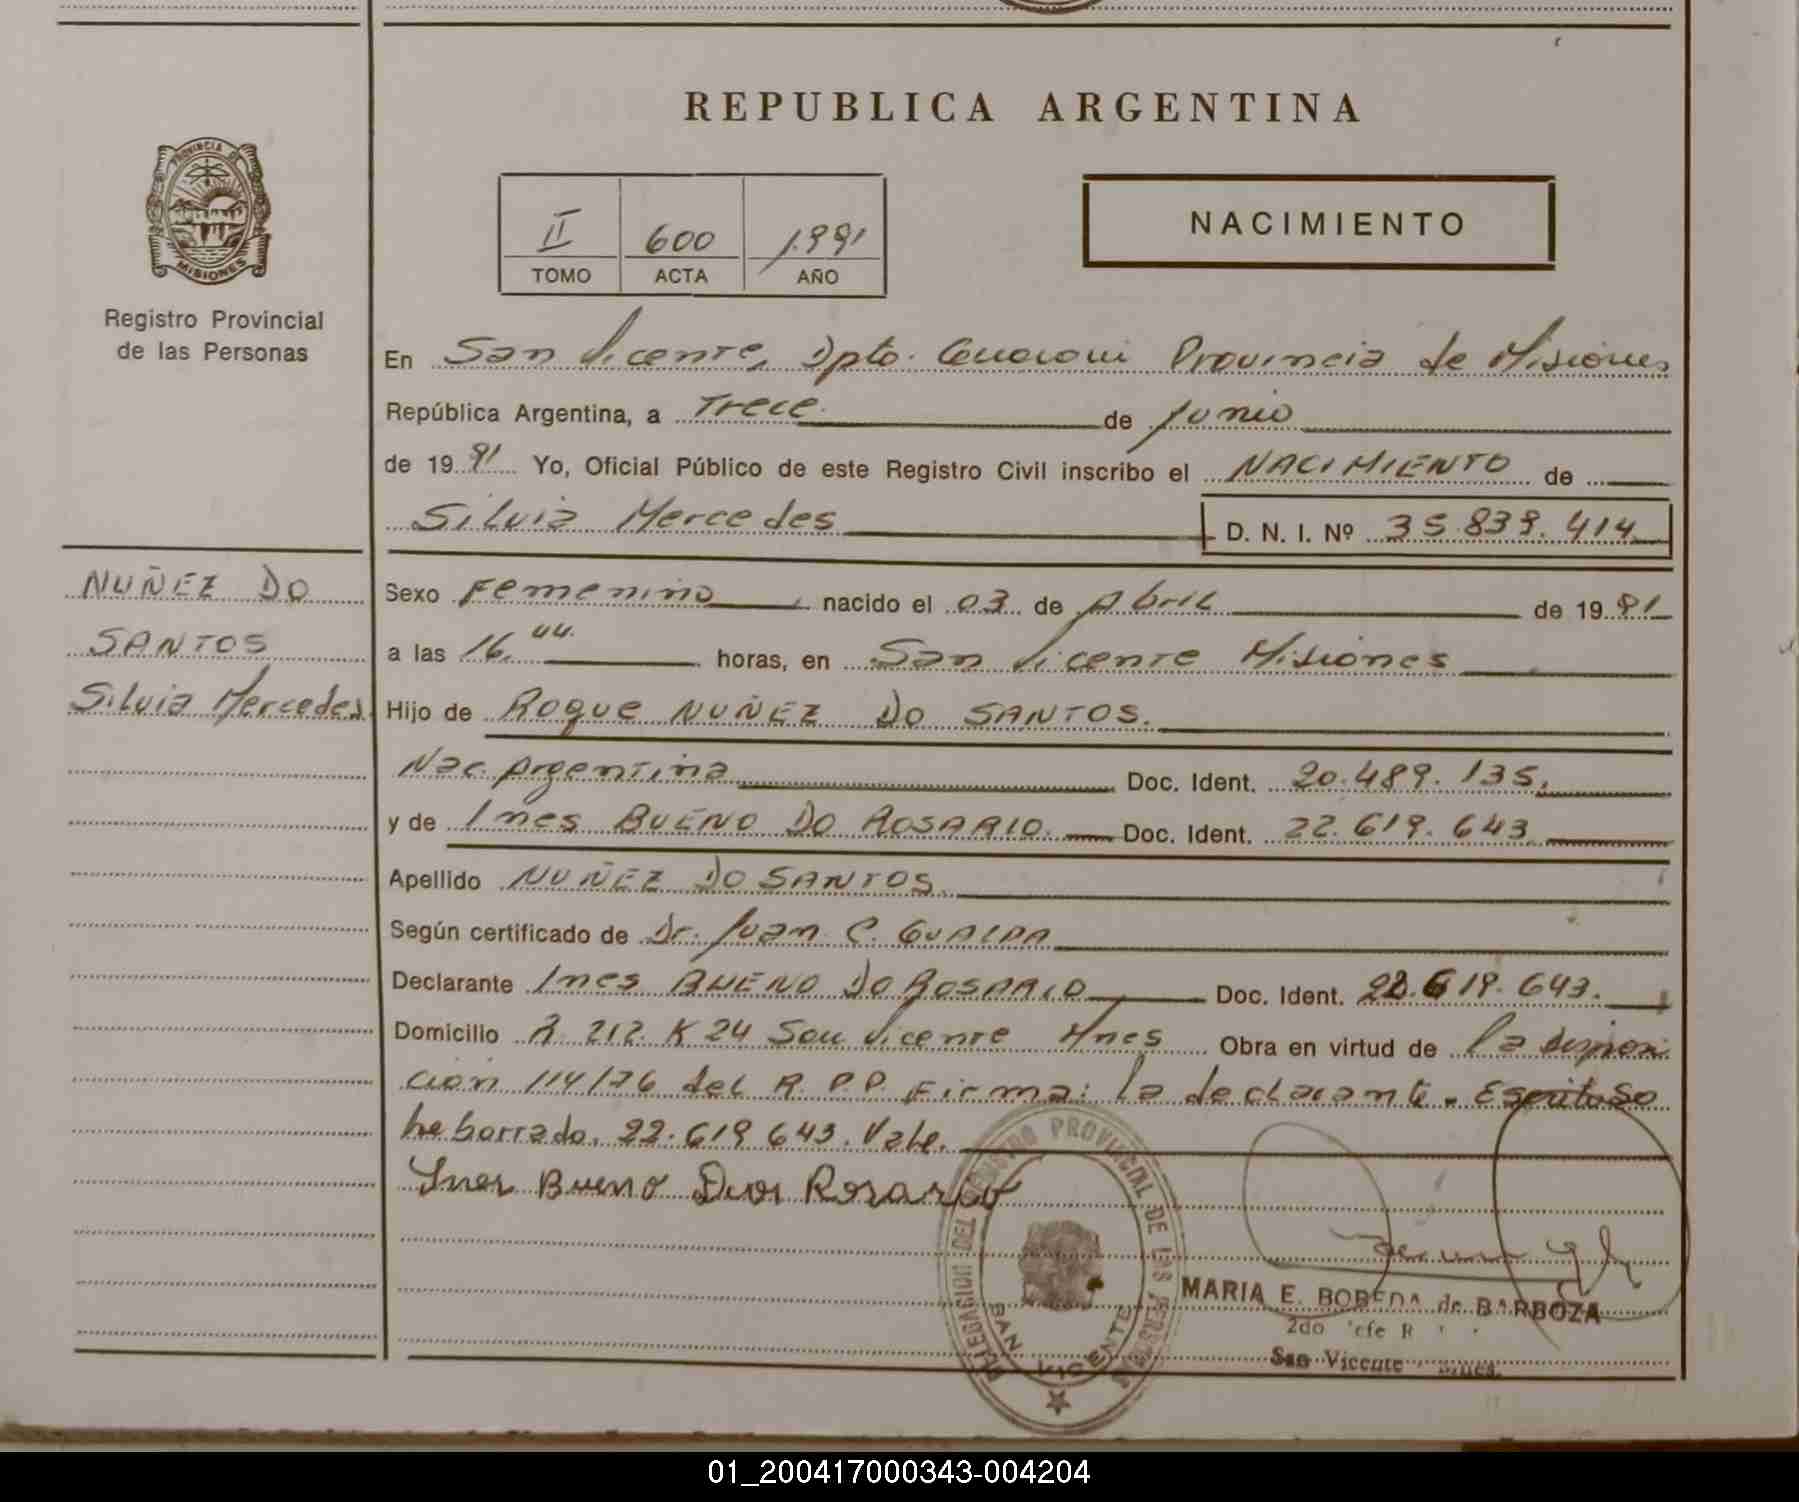 REPUBLICA ARGENTINA
PROVINCIA DE
MISIONES
Registro Provincial
de las Personas
II 600 1.991
TOMO ACTA AÑO
NACIMIENTO
En San Vicente, Dpto. Guarani Provincia de Misiones
República Argentina, a Trece de Junio
de 1991 Yo, Oficial Público de este Registro Civil inscribo el NACIMIENTO de
Silvia Mercedes D. N. I. Nº 35.839.414
NUÑEZ DO
SANTOS
Silvia Mercedes
Sexo Femenino nacido el 03 de Abril de 1991
a las 16,44. horas, en San Vicente Misiones
Hijo de Roque NUÑEZ DO SANTOS.
Nac. Argentina Doc. Ident. 20.489.135.
y de Ines BUENO DO ROSARIO. Doc. Ident. 22.619.643
Apellido NUÑEZ DO SANTOS.
Según certificado de Dr. Juan C. GUALDA
Declarante Ines BUENO DO ROSARIO Doc. Ident. 22.619.643.
Domicilio R. 212. K 24 San Vicente Mnes Obra en virtud de la disposi
cion 114/76 del R.P.P. Firma: la declarante. Escrito so
bre borrado. 22.619 643. Vale.
Ines Bueno Dos Rosario
DELEGACION DEL REGISTRO PROVINCIAL DE LAS PERSONAS
SAN VICENTE
MARIA E. BOBEDA de BARBOZA
2do Jefe R
San Vicente Mnes.
01_200417000343-004204